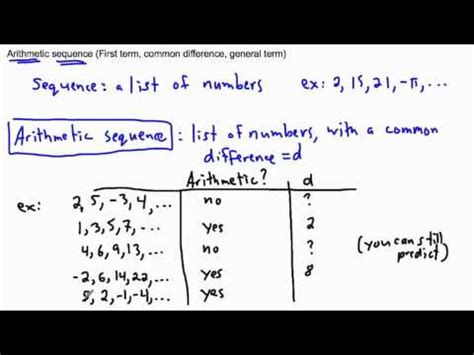 Arithmetic sequence (First term, common difference, general term)
Sequence: a list of numbers ex: 2, 15, 21, -π, ...
Arithmetic sequence : list of numbers, with a common
difference = d
Arithmetic? d
ex: 2, 5, -3, 4, ... no ?
1, 3, 5, 7, ... yes 2
4, 6, 9, 13, ... no ? (you can still
predict)
-2, 6, 14, 22, ... yes 8
5, 2, -1, -4, ... yes